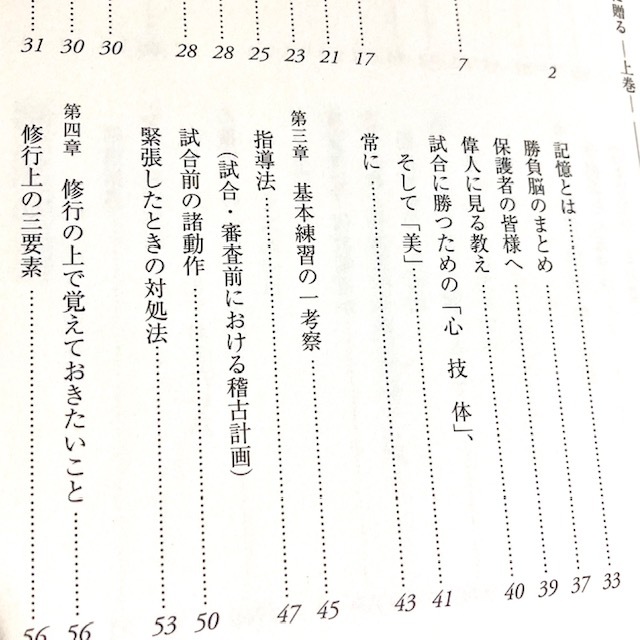 贈る ―上巻―
2
7
17
21
23
25
28
28
30
30
31
記憶とは……………33
勝負脳のまとめ……………37
保護者の皆様へ……………39
偉人に見る教え……………40
試合に勝つための「心 技 体」、
そして「美」……………41
常に……………43
第三章 基本練習の一考察……………45
指導法……………47
(試合・審査前における稽古計画)
試合前の諸動作……………50
緊張したときの対処法……………53
第四章 修行の上で覚えておきたいこと……………56
修行上の三要素……………56